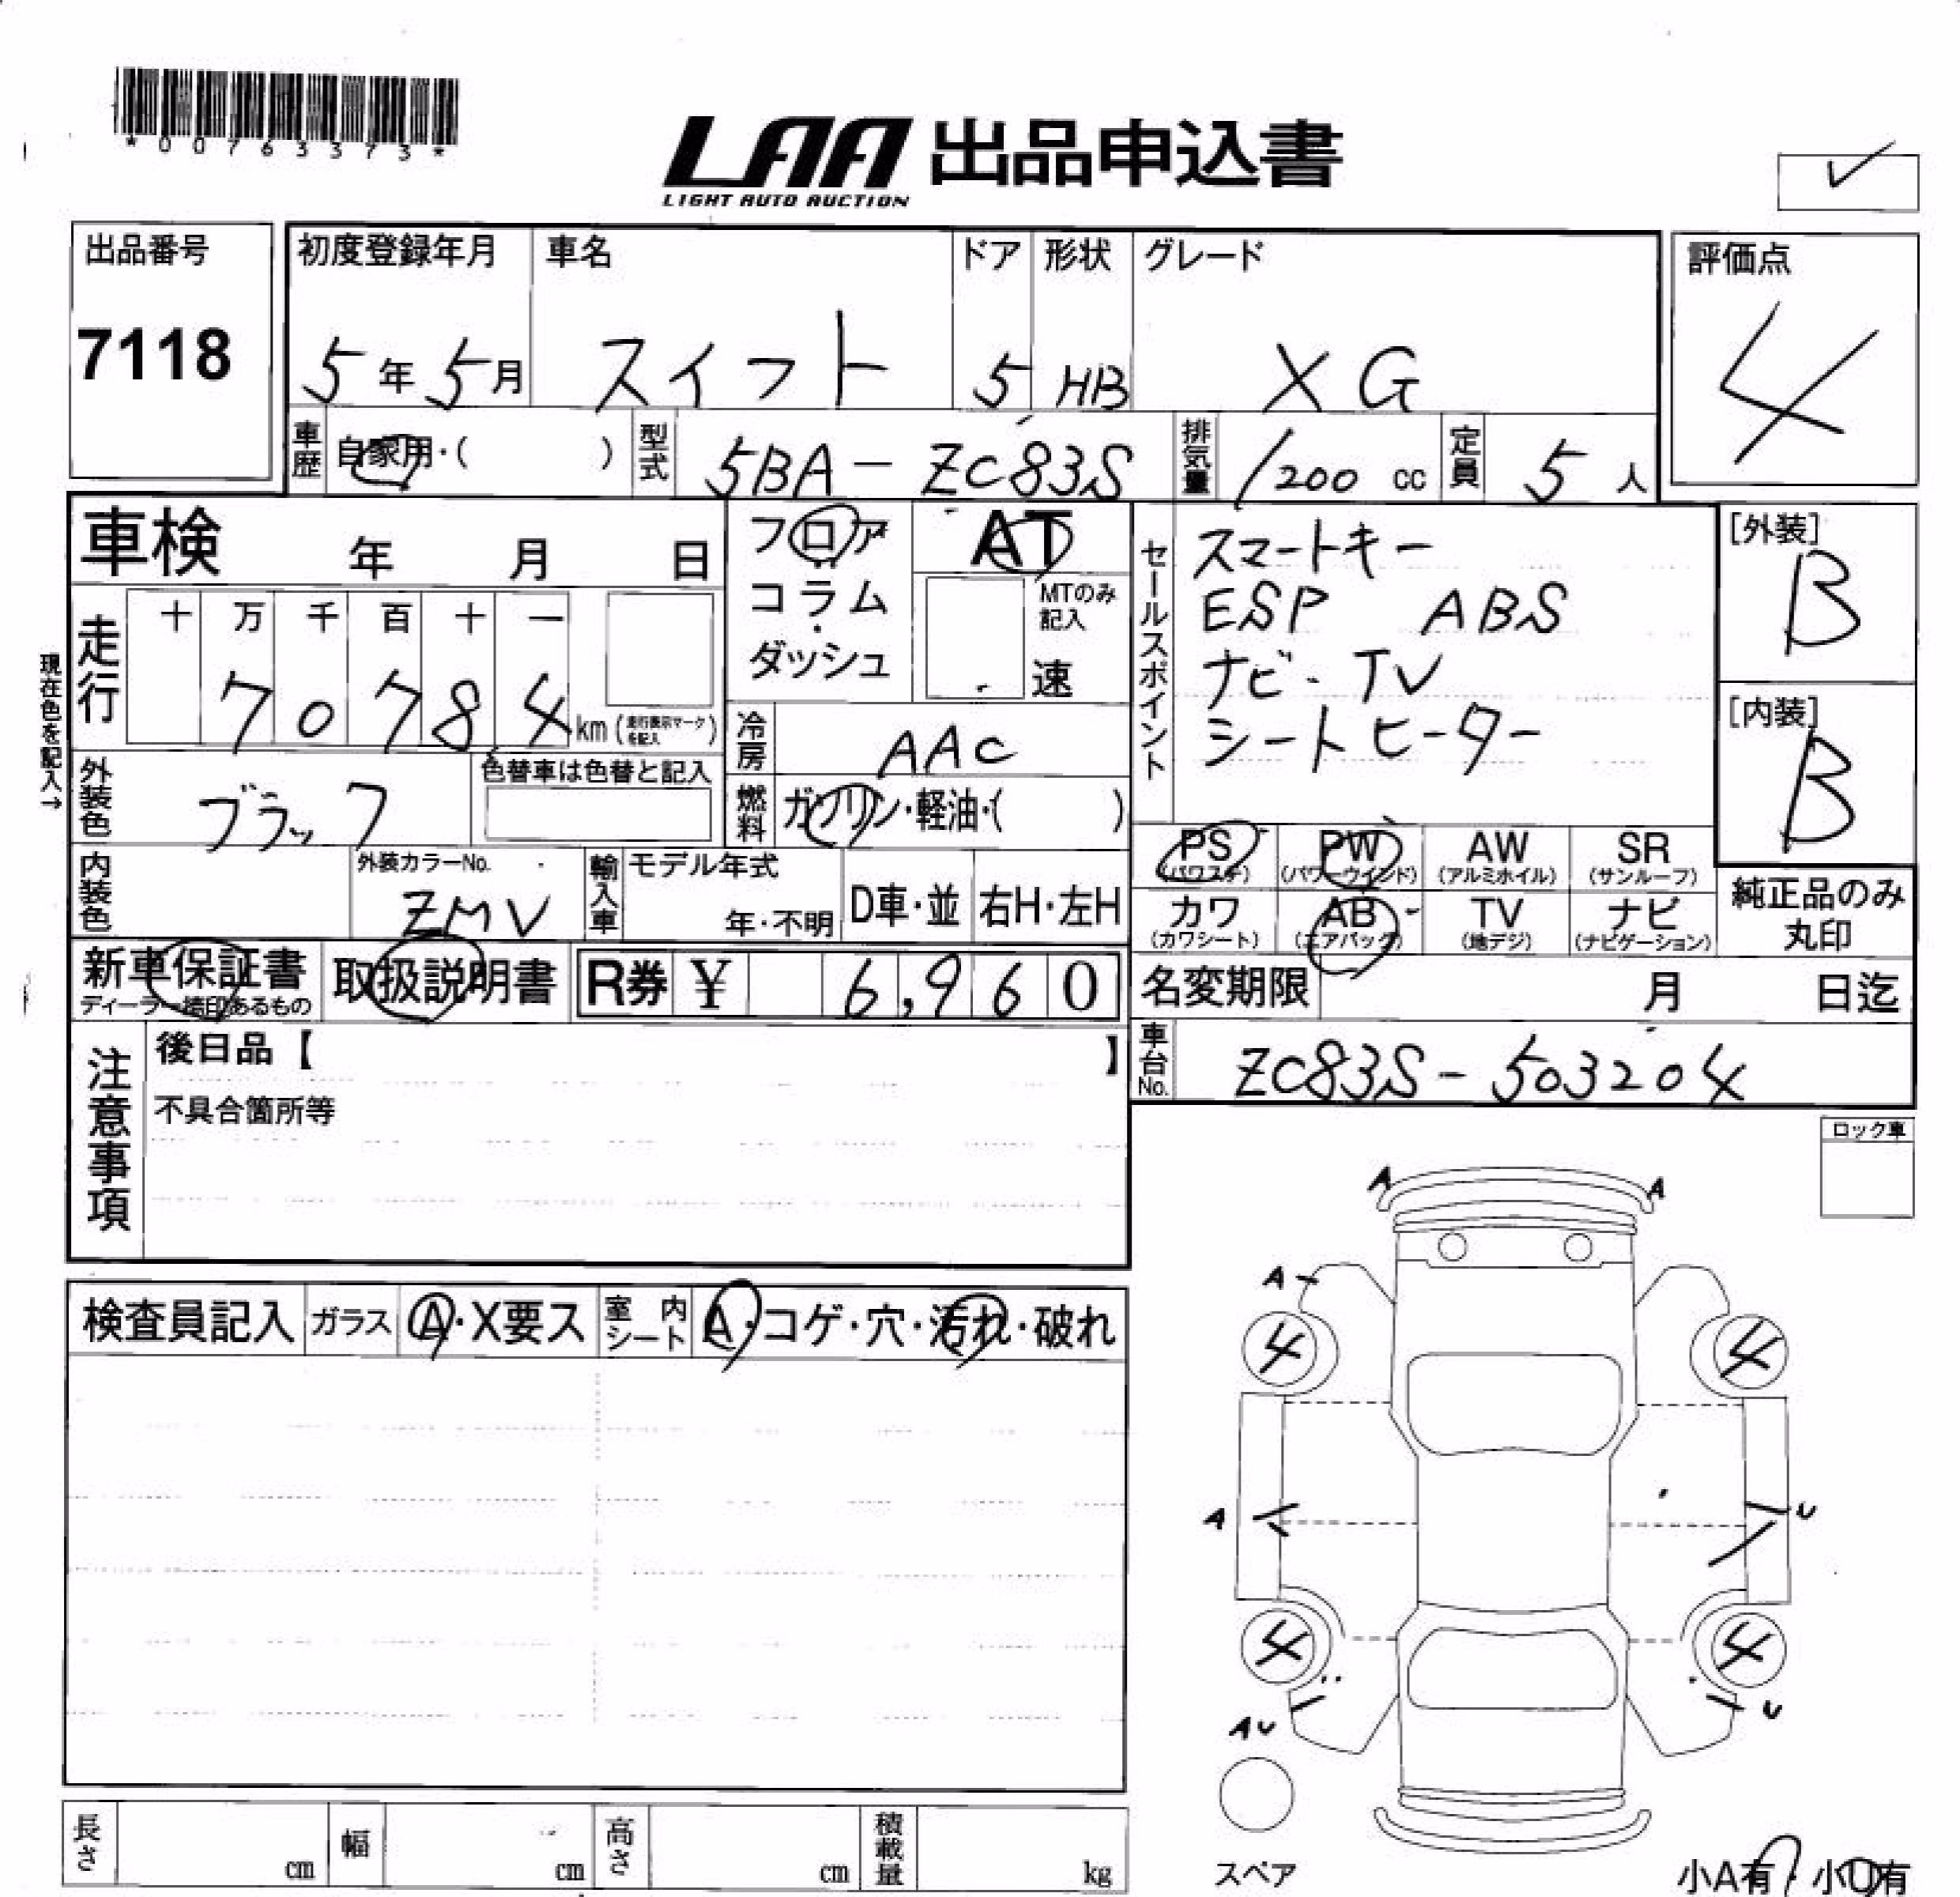 *00763373*
LAA 出品申込書
LIGHT AUTO AUCTION
出品番号
7118
初度登録年月 車名 ドア 形状 グレード
5年5月 スイフト 5 HB XG
評価点
4
車歴 自家用・( ) 型式 5BA-ZC83S 排気量 1200 cc 定員 5人
車検 年 月 日
フロア
コラム
・
ダッシュ
AT
MTのみ
記入
速
現在色を記入→
走行 十 万 千 百 十 一
7 0 7 8 4 km (走行表示マークを記入)
冷房 AAC
外装色 ブラック
色替車は色替と記入
燃料 ガソリン・軽油・( )
内装色
外装カラーNo.
ZMV
輸入車 モデル年式
年・不明 D車・並 右H・左H
セールスポイント
スマートキー
ESP ABS
ナビ・TV
シートヒーター
[外装]
B
[内装]
B
PS
(パワステ)
PW
(パワーウインド)
AW
(アルミホイル)
SR
(サンルーフ)
カワ
(カワシート)
AB
(エアバッグ)
TV
(地デジ)
ナビ
(ナビゲーション)
純正品のみ
丸印
新車保証書
ディーラー捺印あるもの
取扱説明書
R券 ¥ 6,960
名変期限 月 日迄
車台No. ZC83S-503204
注意事項
後日品【 】
不具合箇所等
ロック車
検査員記入 ガラス A・X要ス 室内シート A・コゲ・穴・汚れ・破れ
A A
A
4 4
A U
4 4
AU U
スペア
小A有・小U有
長さ cm 幅 cm 高さ cm 積載量 kg